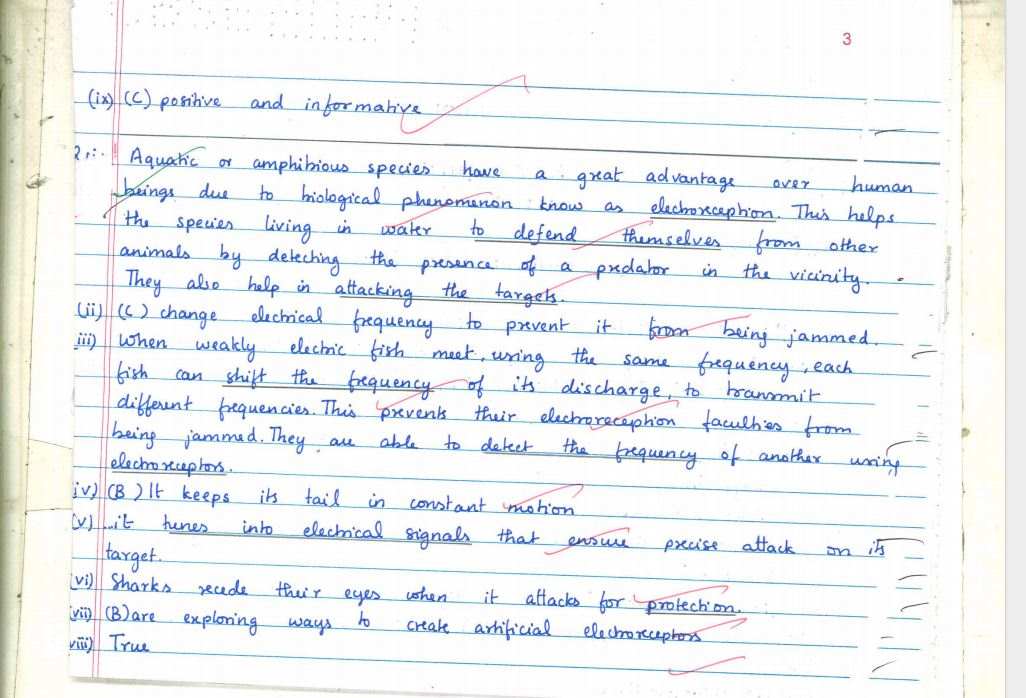 3
(ix) (C) positive and informative
2.:. Aquatic or amphibious species have a great advantage over human
beings due to biological phenomenon know as electroreception. This helps
the species living in water to defend themselves from other
animals by detecting the presence of a predator in the vicinity.
They also help in attacking the targets.
(ii) (C) change electrical frequency to prevent it from being jammed.
iii) When weakly electric fish meet, using the same frequency, each
fish can shift the frequency of its discharge, to transmit
different frequencies. This prevents their electroreception faculties from
being jammed. They are able to detect the frequency of another using
electroreceptors.
iv) (B) It keeps its tail in constant motion
(v) it tunes into electrical signals that ensure precise attack on its
target.
(vi) Sharks recede their eyes when it attacks for protection.
(vii) (B) are exploring ways to create artificial electroreceptors
viii) True